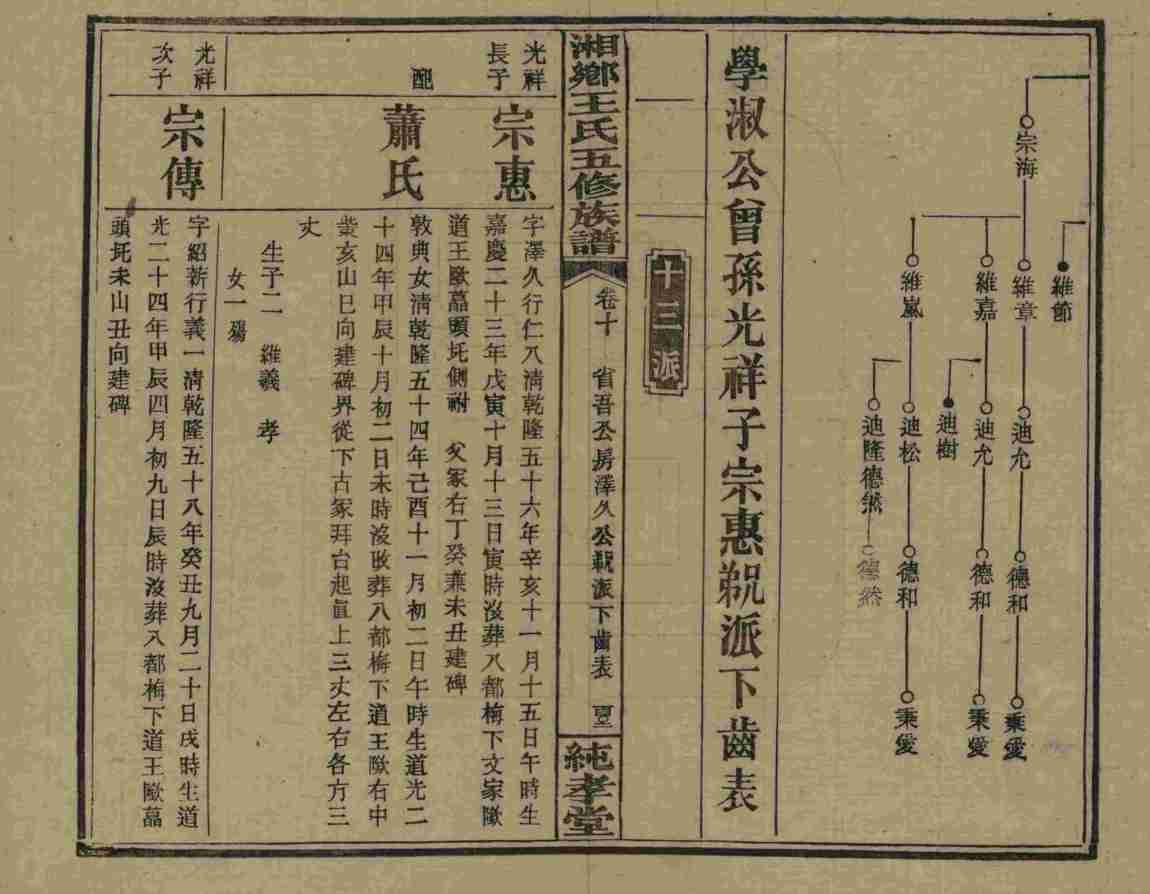 宗海
維節
維章
維嘉
維嵐
迪允
迪允
迪樹
迪松
迪隆德然
德和
德和
德和
德然
秉愛
秉愛
秉愛
學淑公曾孫光祥子宗惠覶派下齒表
十三派
湘鄉王氏五修族譜
卷十
省吾公房澤久公覶派下齒表
純孝堂
光祥
長子
宗惠
字澤久行仁八清乾隆五十六年辛亥十一月十五日午時生
嘉慶二十三年戊寅十月十三日寅時沒葬八都梅下文家歐
道王歐蕌頭坵側祔 父冢右丁癸兼未丑建碑
配
蕭氏
敦典女清乾隆五十四年己酉十一月初二日午時生道光二
十四年甲辰十月初二日未時沒收葬八都梅下道王歐右中
塋亥山巳向建碑界從下古冢拜台起直上三丈左右各方三
丈
生子二 維義 孝
女一殤
光祥
次子
宗傳
字紹薪行義一清乾隆五十八年癸丑九月二十日戌時生道
光二十四年甲辰四月初九日辰時沒葬八都梅下道王歐蕌
頭坵未山丑向建碑